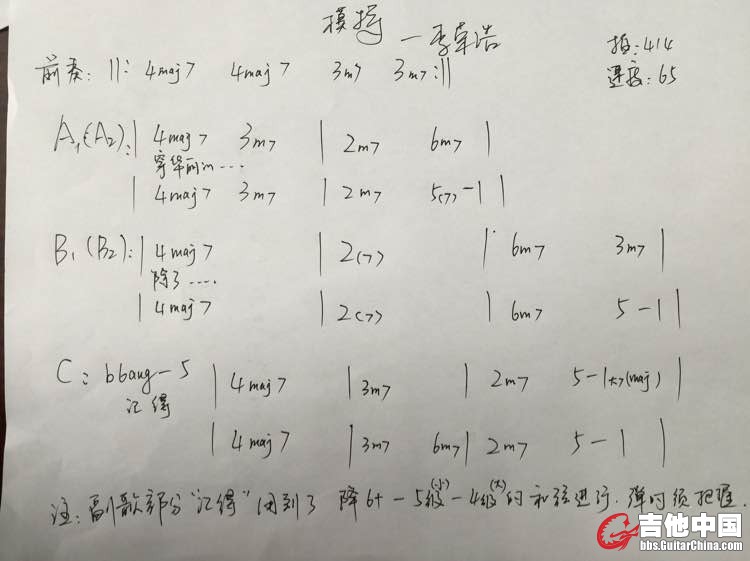 模样 — 李荣浩
拍:4/4
速度:65
前奏: ||: 4maj7 4maj7 3m7 3m7 :||
A1(A2): | 4maj7 3m7 | 2m7 6m7 |
穿华丽的……
| 4maj7 3m7 | 2m7 5(7) -1 |
B1(B2): | 4maj7 | 2(7) | 6m7 3m7 |
除了……
| 4maj7 | 2(7) | 6m7 5-1 |
C: b6aug-5 | 4maj7 | 3m7 | 2m7 5-1大7(maj) |
记得
| 4maj7 | 3m7 6m7 | 2m7 5-1 |
注: 副歌部分“记得”用到了 降6+ - 5级(小) - 4级(大) 的和弦进行. 弹时须把握.
吉他中国
bbs.GuitarChina.com